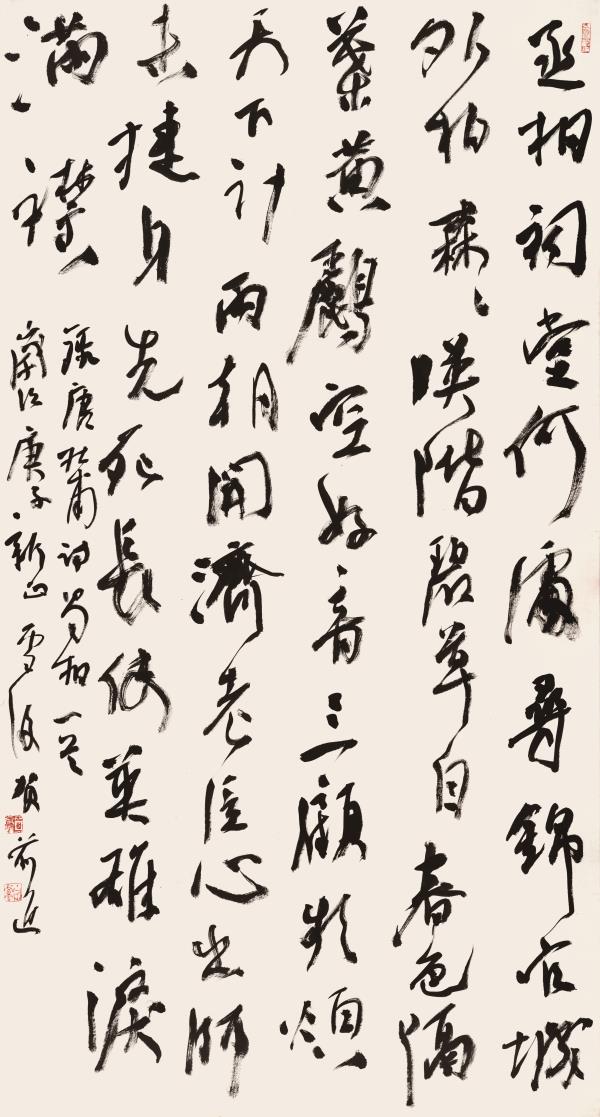 丞相祠堂何處尋錦官城
外柏森〻暎階碧草自春色隔
葉黃鸝空好音三顧頻煩
天下計兩朝開濟老臣心出師
未捷身先死長使英雄淚
滿襟
錄唐杜甫詩蜀相一首
歲次庚子新正雪後